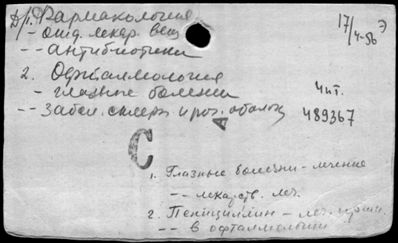 1. Фармакология
- отд. лекар. вещ
-- антибиотики
2. Офтальмология
- глазные болезни
-- забол. склеры и рог. оболоч
17/4-56
Э
Чит.
489367
А
С
1. Глазные болезни - лечение
-- лекарств. леч.
2. Пенициллин - леч.
-- в офтальмологии